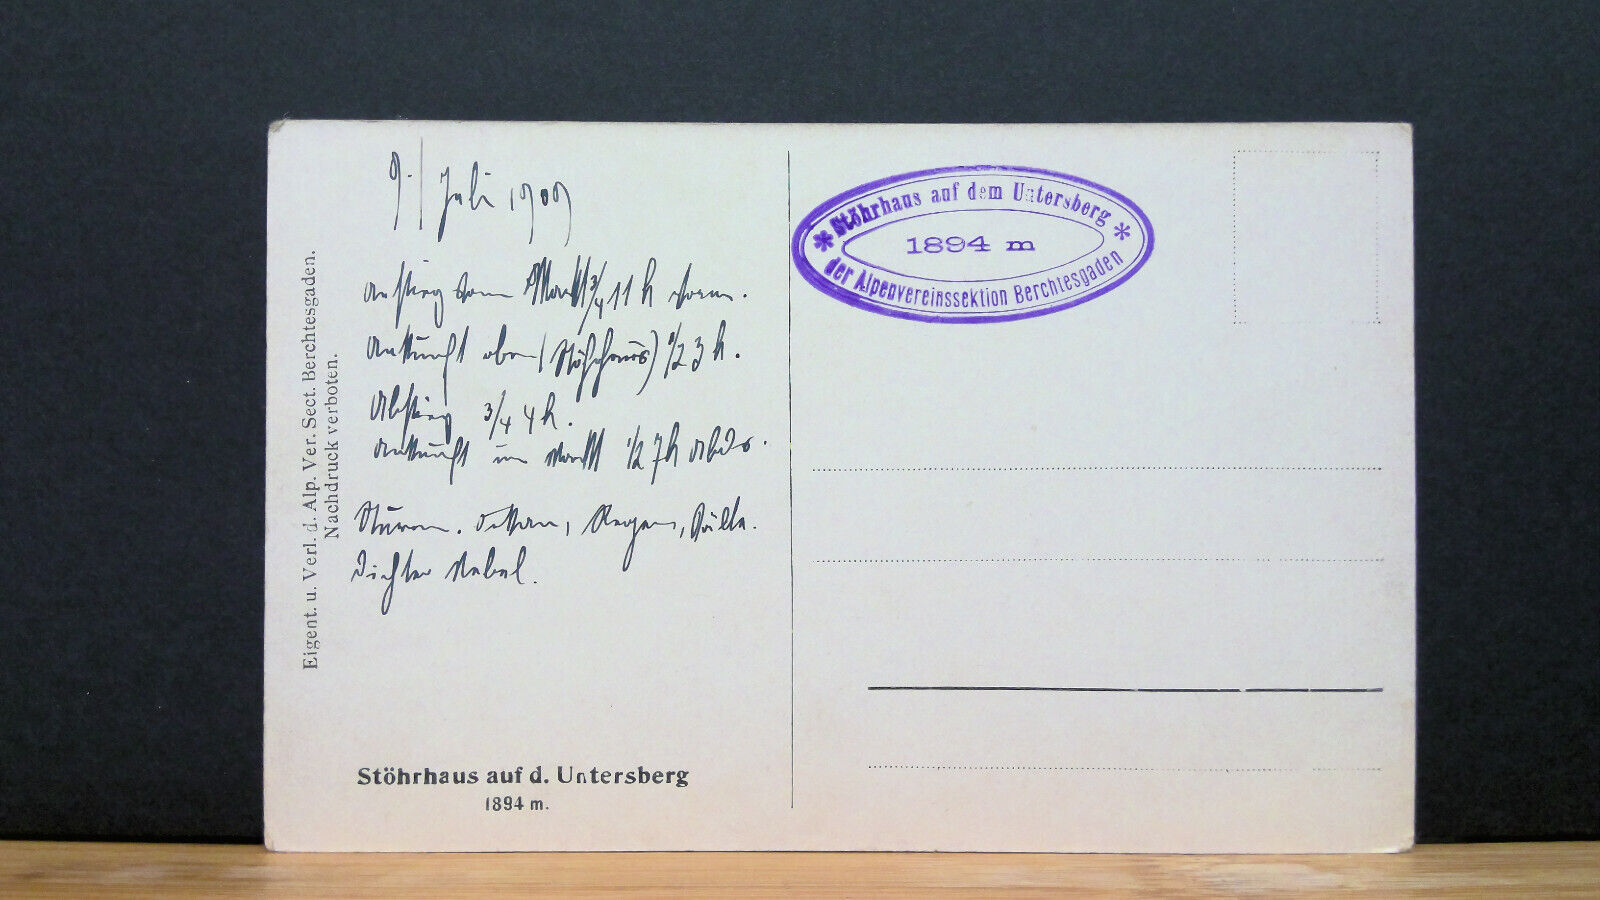 9./ Juli 1909
Anstieg vom Markt 3/4 11 h vorm.
Ankunft oben (Stöhrhaus) 1/2 3 h.
Abstieg 3/4 4 h.
Ankunft im Markt 1/2 7 h Abds.
Sturm. Regen, Kälte.
Dichter Nebel.
Eigent. u. Verl. d. Alp. Ver. Sect. Berchtesgaden.
Nachdruck verboten.
Stöhrhaus auf d. Untersberg
1894 m.
* Stöhrhaus auf dem Untersberg *
1894 m
der Alpenvereinssektion Berchtesgaden